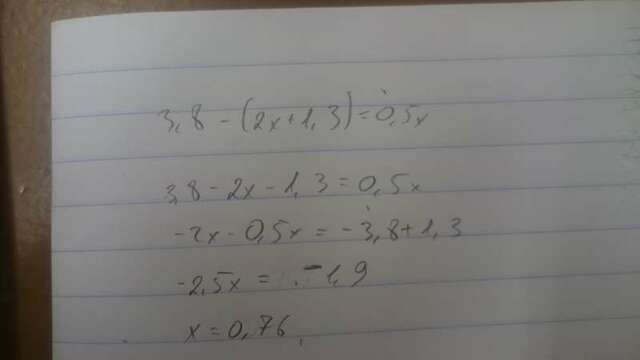 3,8 - (2x+1,3) = 0,5x
3,8 - 2x - 1,3 = 0,5x
-2x - 0,5x = -3,8 + 1,3
-2,5x = -1,9
x = 0,76